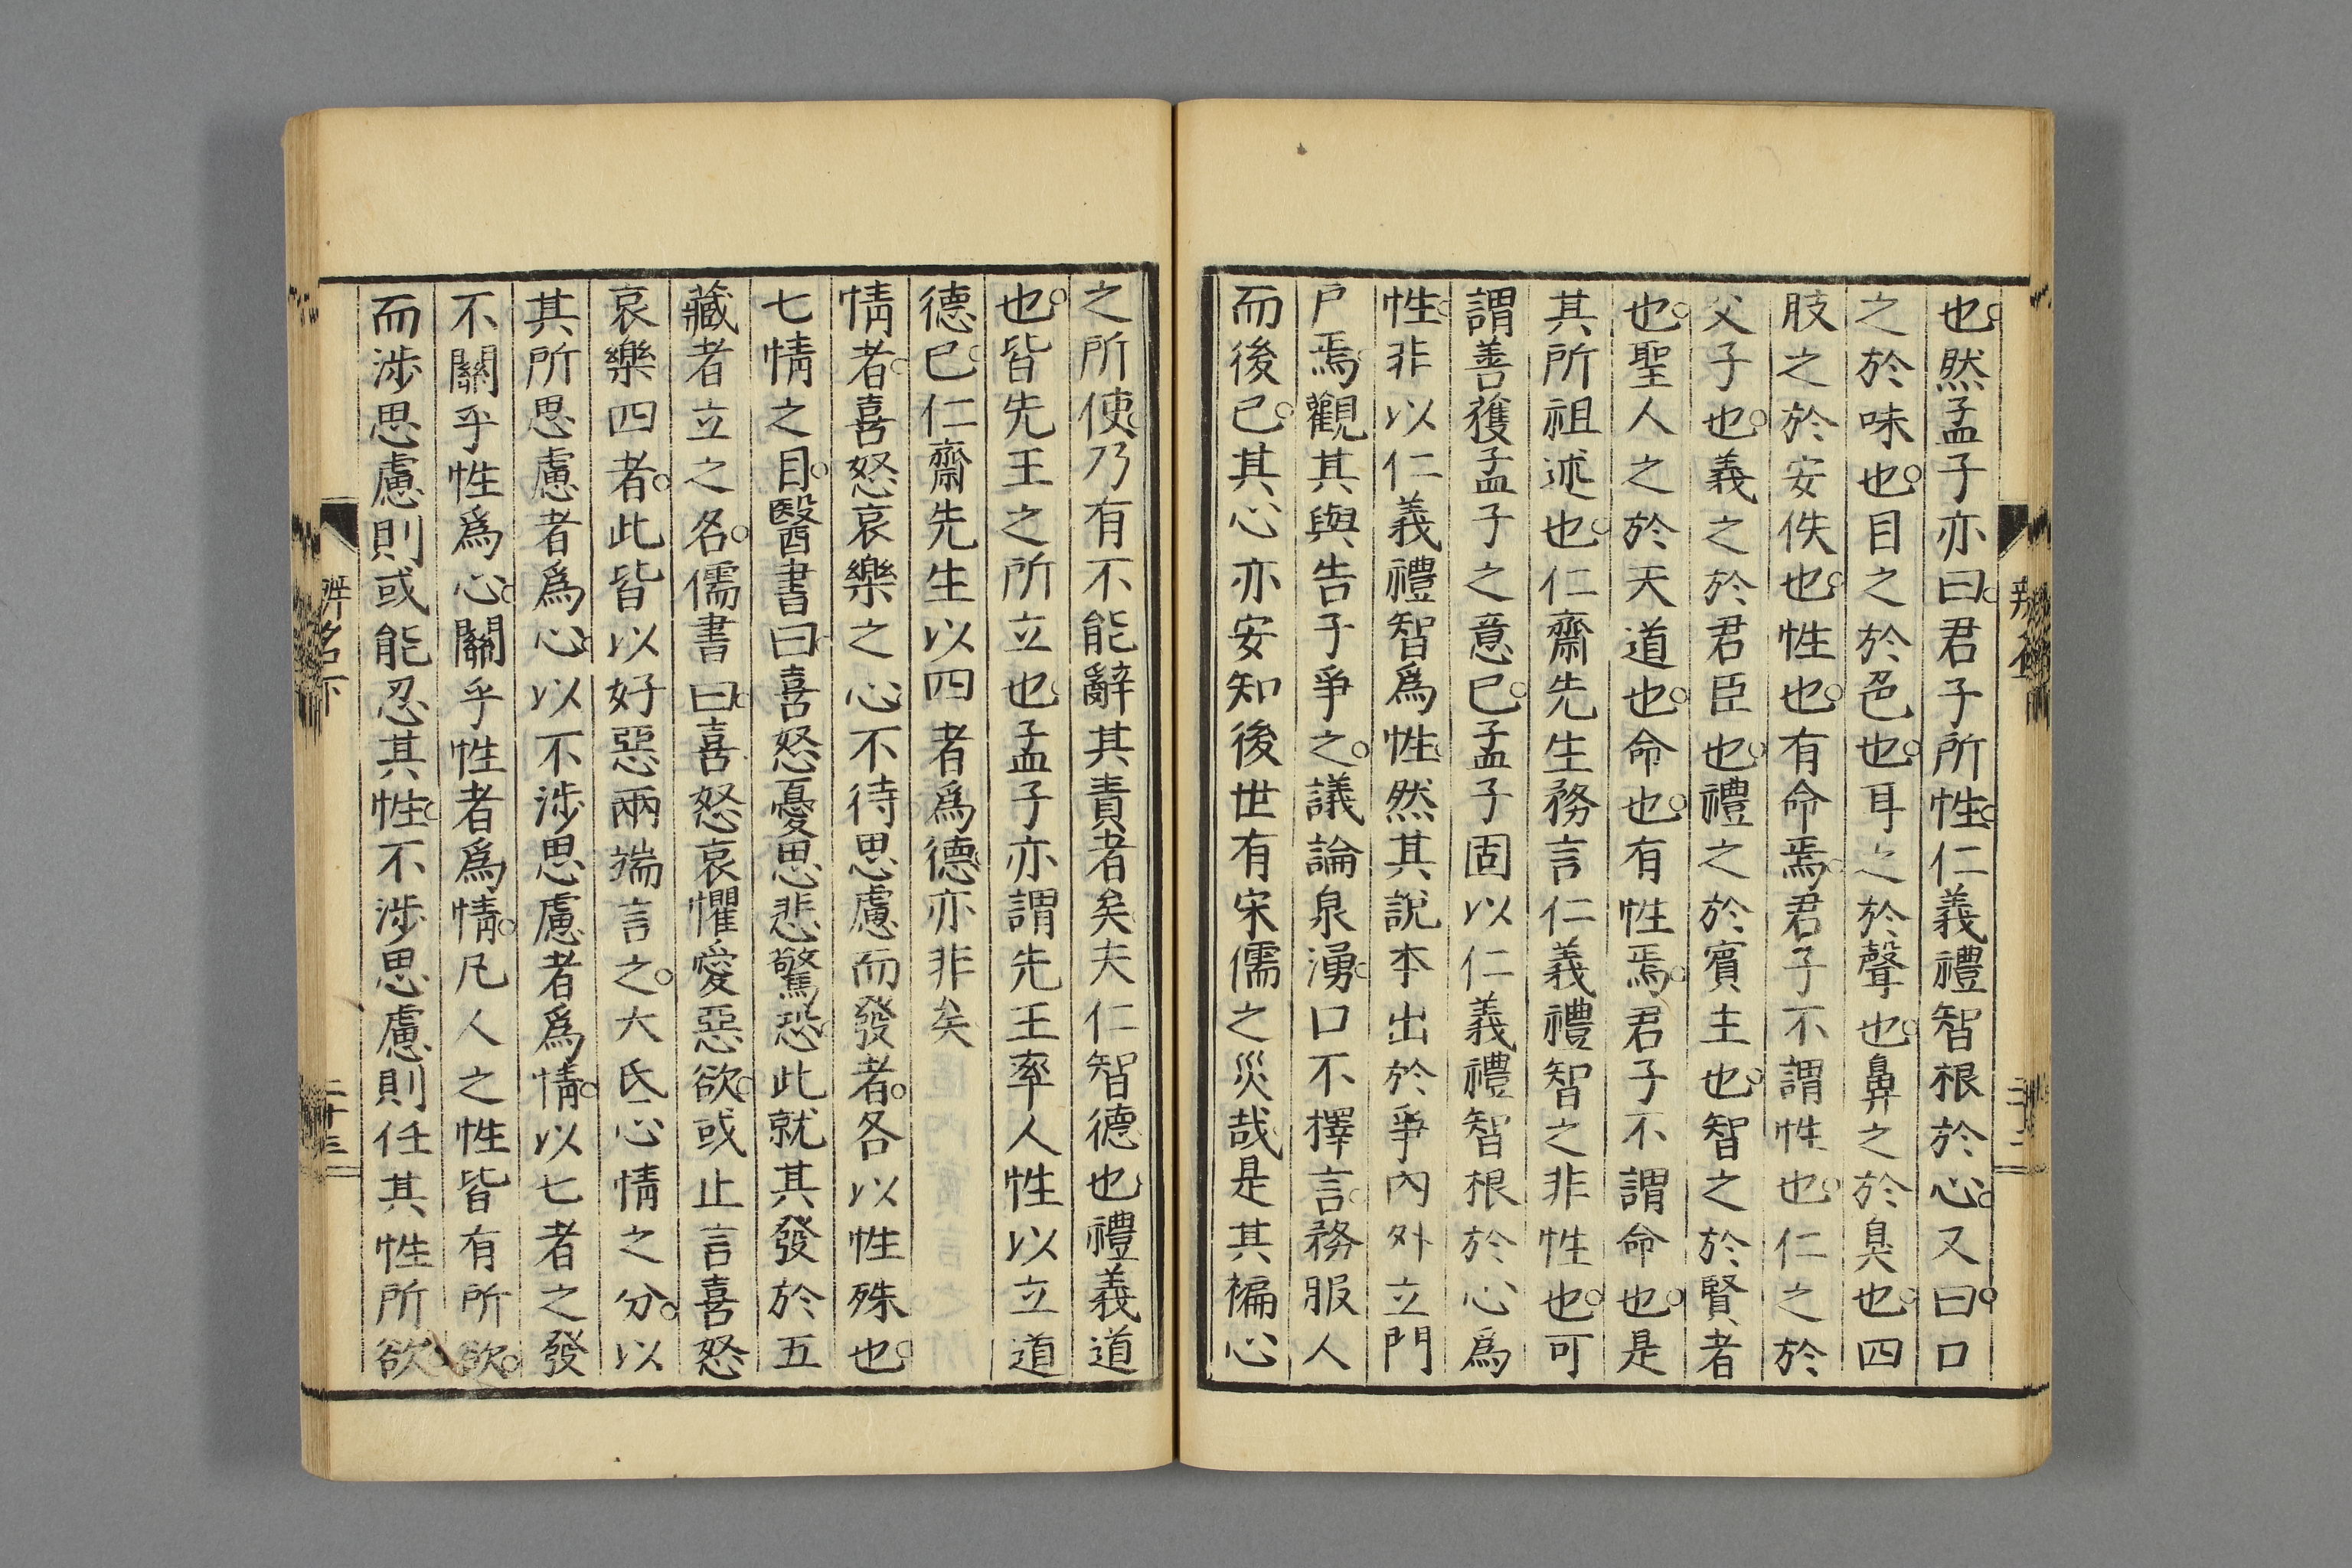 也。然孟子亦曰。君子所性。仁義禮智根於心。又曰。口
之於味也。目之於色也。耳之於聲也。鼻之於臭也。四
肢之於安佚也。性也。有命焉。君子不謂性也。仁之於
父子也。義之於君臣也。禮之於賓主也。智之於賢者
也。聖人之於天道也。命也。有性焉。君子不謂命也。是
其所祖述也。仁齋先生務言仁義禮智之非性也。可
謂善獲孟子之意已。孟子固以仁義禮智根於心爲
性。非以仁義禮智爲性。然其說本出於爭內外立門
戶焉。觀其與告子爭之。議論泉湧。口不擇言。務服人
而後已。其心亦安知後世有宋儒之災哉。是其褊心
之所使。乃有不能辭其責者矣。夫仁智德也。禮義道
也。皆先王之所立也。孟子亦謂先王率人性以立道
德已。仁齋先生以四者爲德。亦非矣
情者。喜怒哀樂之心。不待思慮而發者。各以性殊也。
七情之目。醫書曰。喜怒憂思悲驚恐。此就其發於五
藏者立之名。儒書曰。喜怒哀懼愛惡欲。或止言喜怒
哀樂四者。此皆以好惡兩端言之。大氐心情之分。以
其所思慮者爲心。以不涉思慮者爲情。以七者之發
不關乎性爲心。關乎性者爲情。凡人之性皆有所欲。
而涉思慮則或能忍其性。不涉思慮則任其性所欲。
辨名下
二十三